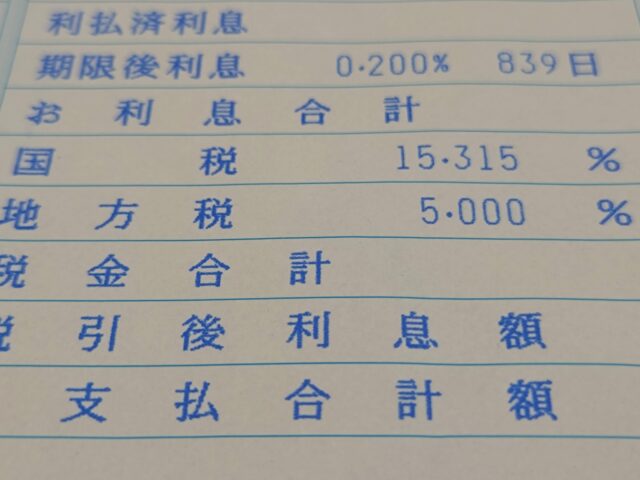 利払済利息
期限後利息 0.200% 839日
お利息合計
国税 15.315 %
地方税 5.000 %
税金合計
税引後利息額
支払合計額